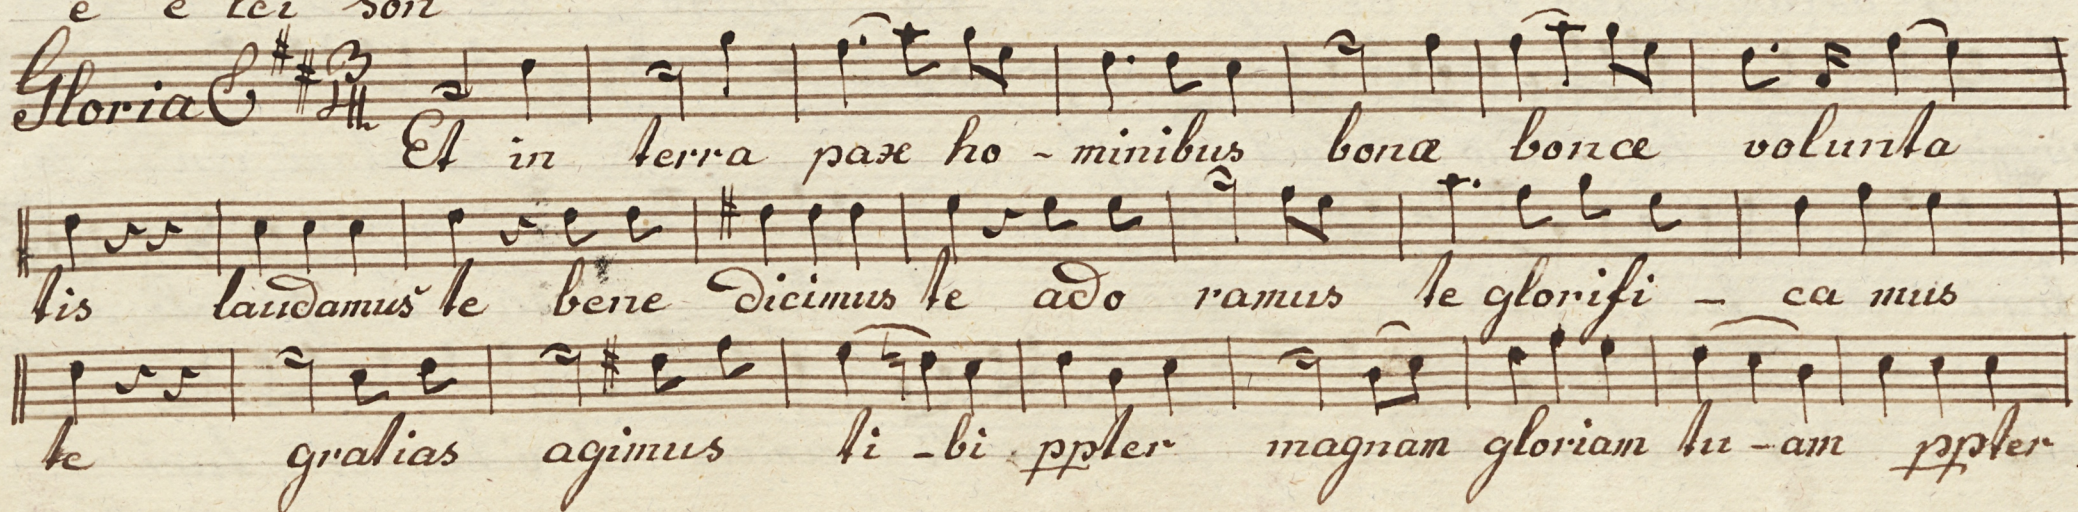 e e lei son
Gloria 3/4
Et in terra pax ho - minibus bonæ bonæ volunta
tis laudamus te bene dicimus te ado ramus te glorifi - ca mus
te gratias agimus ti - bi ppter magnam gloriam tu - am ppter